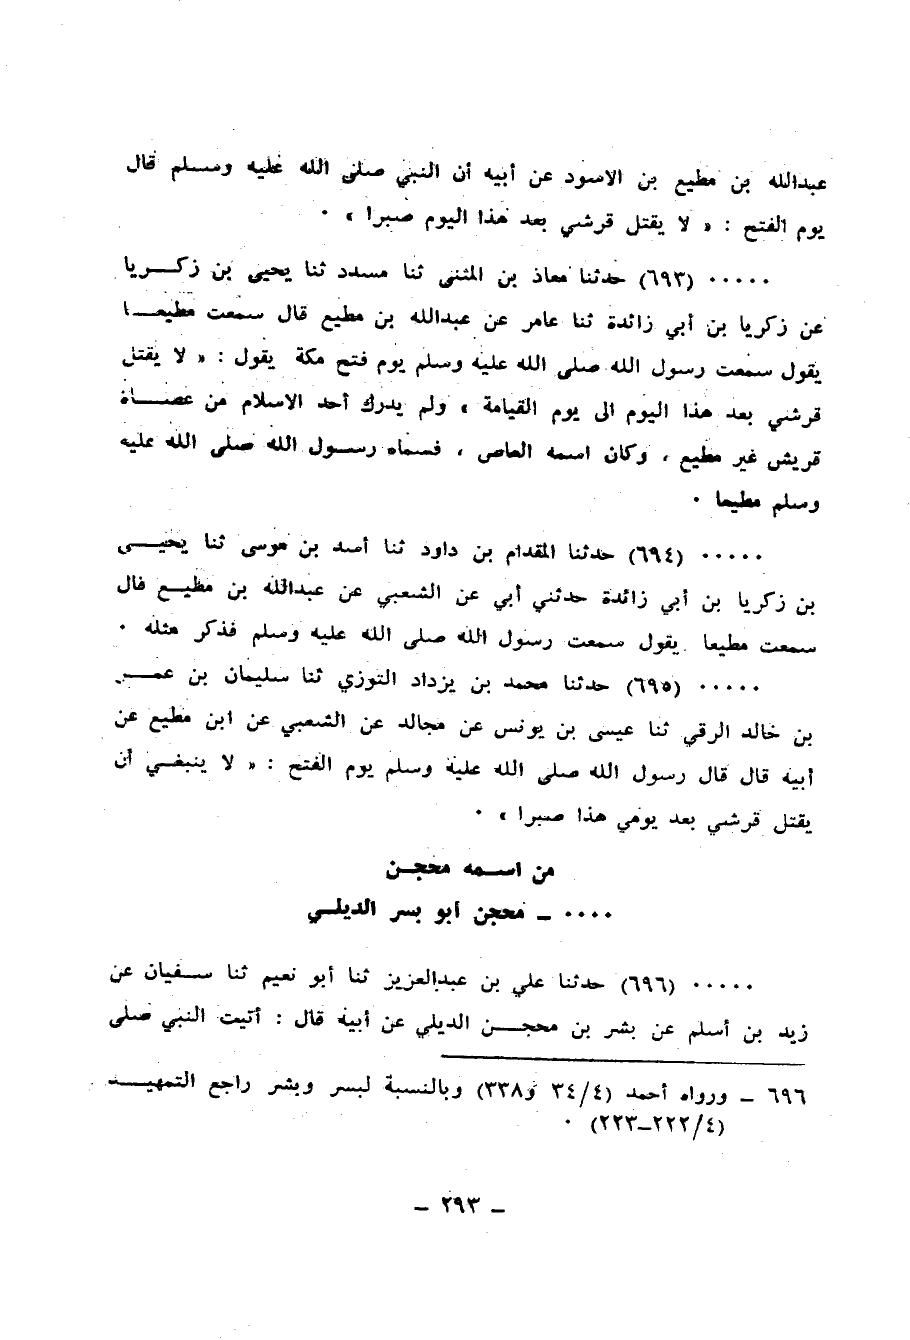 عبدالله بن مطيع بن الاسود عن أبيه أن النبي صلى الله عليه ومسلم قال
يوم الفتح : « لا يقتل قرشي بعد هذا اليوم صبرا » ·
····· (٦٩٣) حدثنا معاذ بن المثنى ثنا مسدد ثنا يحيى بن زكـــريا
عن زكريا بن أبي زائدة ثنا عامر عن عبدالله بن مطيع قال سمعت مطيعـــا
يقول سمعت رسول الله صلى الله عليه وسلم يوم فتح مكة يقول : « لا يقتل
قرشي بعد هذا اليوم الى يوم القيامة » ولم يدرك أحد الاسلام من عصـــاة
قريش غير مطيع ، وكان اسمه العاص ، فسماه رســول الله صلى الله عليه
وسلم مطيعا ·
····· (٦٩٤) حدثنا المقدام بن داود ثنا أسد بن موسى ثنا يحيـــى
بن زكريا بن أبي زائدة حدثني أبي عن الشعبي عن عبدالله بن مطيـــع قال
سمعت مطيعا يقول سمعت رسول الله صلى الله عليه وسلم فذكر مثله ·
····· (٦٩٥) حدثنا محمد بن يزداد التوزي ثنا سليمان بن عمـــر
بن خالد الرقي ثنا عيسى بن يونس عن مجالد عن الشعبي عن ابن مطيع عن
أبيه قال قال رسول الله صلى الله عليه وسلم يوم الفتح : « لا ينبغـي أن
يقتل قرشي بعد يومي هذا صبرا » ·
من اســمه محجــن
···· ــ محجن أبو بسر الديلــي
····· (٦٩٦) حدثنا علي بن عبدالعزيز ثنا أبو نعيم ثنا ســفيان عن
زيد بن أسلم عن بشر بن محجـــن الديلي عن أبيه قال : أتيت النبي صلى
٦٩٦ ــ ورواه أحمد (٣٤/٤ و٣٣٨) وبالنسبة لبسر وبشر راجع التمهيـــد
(٢٢٢/٤ــ٢٢٣) ·
ــ ٢٩٣ ــ